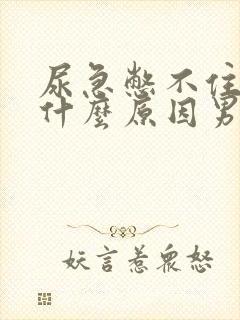 尿急憋不住
什麼原因男
妖言惹眾怒